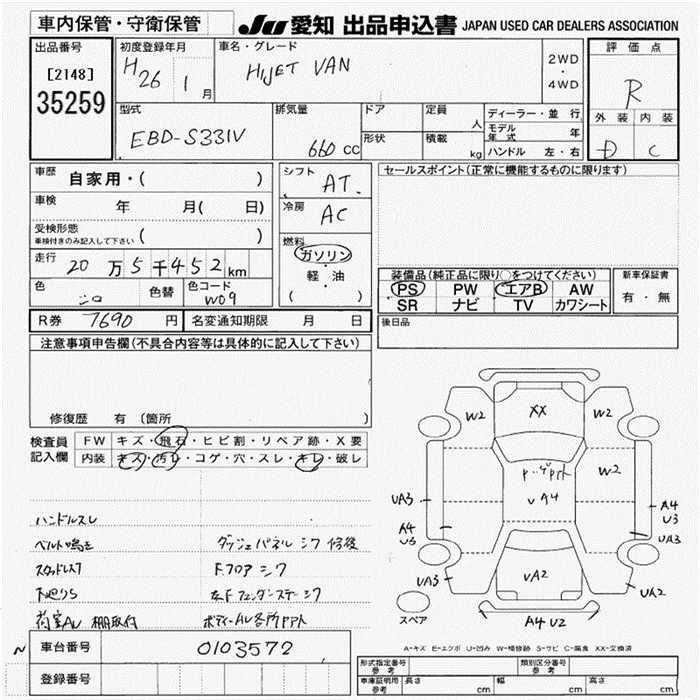 車内保管・守衛保管
JU 愛知 出品申込書 JAPAN USED CAR DEALERS ASSOCIATION
出品番号
[2148]
35259
初度登録年月
H26 1月
車名・グレード
HIJET VAN
2WD
・
4WD
評価点
R
外装 内装
D C
型式
EBD-S331V
排気量
660 cc
ドア
形状
定員
人
積載
kg
ディーラー・並行
モデル年式 年
ハンドル 左・右
車歴
自家用・( )
車検 年 月( 日)
受検形態
車検付きのみ記入して下さい ( )
走行
20万5千452km
色 シロ 色替
色コード W09
シフト
AT
冷房
AC
燃料
ガソリン
・
軽・油
( )
セールスポイント(正常に機能するものに限ります)
装備品(純正品に限り○をつけてください)
PS PW エアB AW
SR ナビ TV カワシート
新車保証書
有・無
後日品
R券 7690 円 名変通知期限 月 日
注意事項申告欄(不具合内容等は具体的に記入して下さい)
修復歴 有 (箇所 )
検査員記入欄
FW キズ・飛石・ヒビ割・リペア跡・X要
内装 キズ・汚れ・コゲ・穴・スレ・キレ・破レ
ハンドルスレ
ベルト鳴き ダッシュパネル シワ 修後
スタッドレス Fフロア シワ
下廻りS 左Fフェンダーステー シワ
荷室AU 棚取付 ボディーAU各所
車台番号 0103572
登録番号
W2 XX W2
W2
V A4
UA3 A4 U3
A4 U3 UA3
UA3 UA2 UA2
スペア A4 U2
A-キズ E-エクボ U-凹み W-補修跡 S-サビ C-腐食 XX-交換済
形式指定番号 参考 類別区分番号 参考
車庫証明用 参考 長さ cm 幅 cm 高さ cm